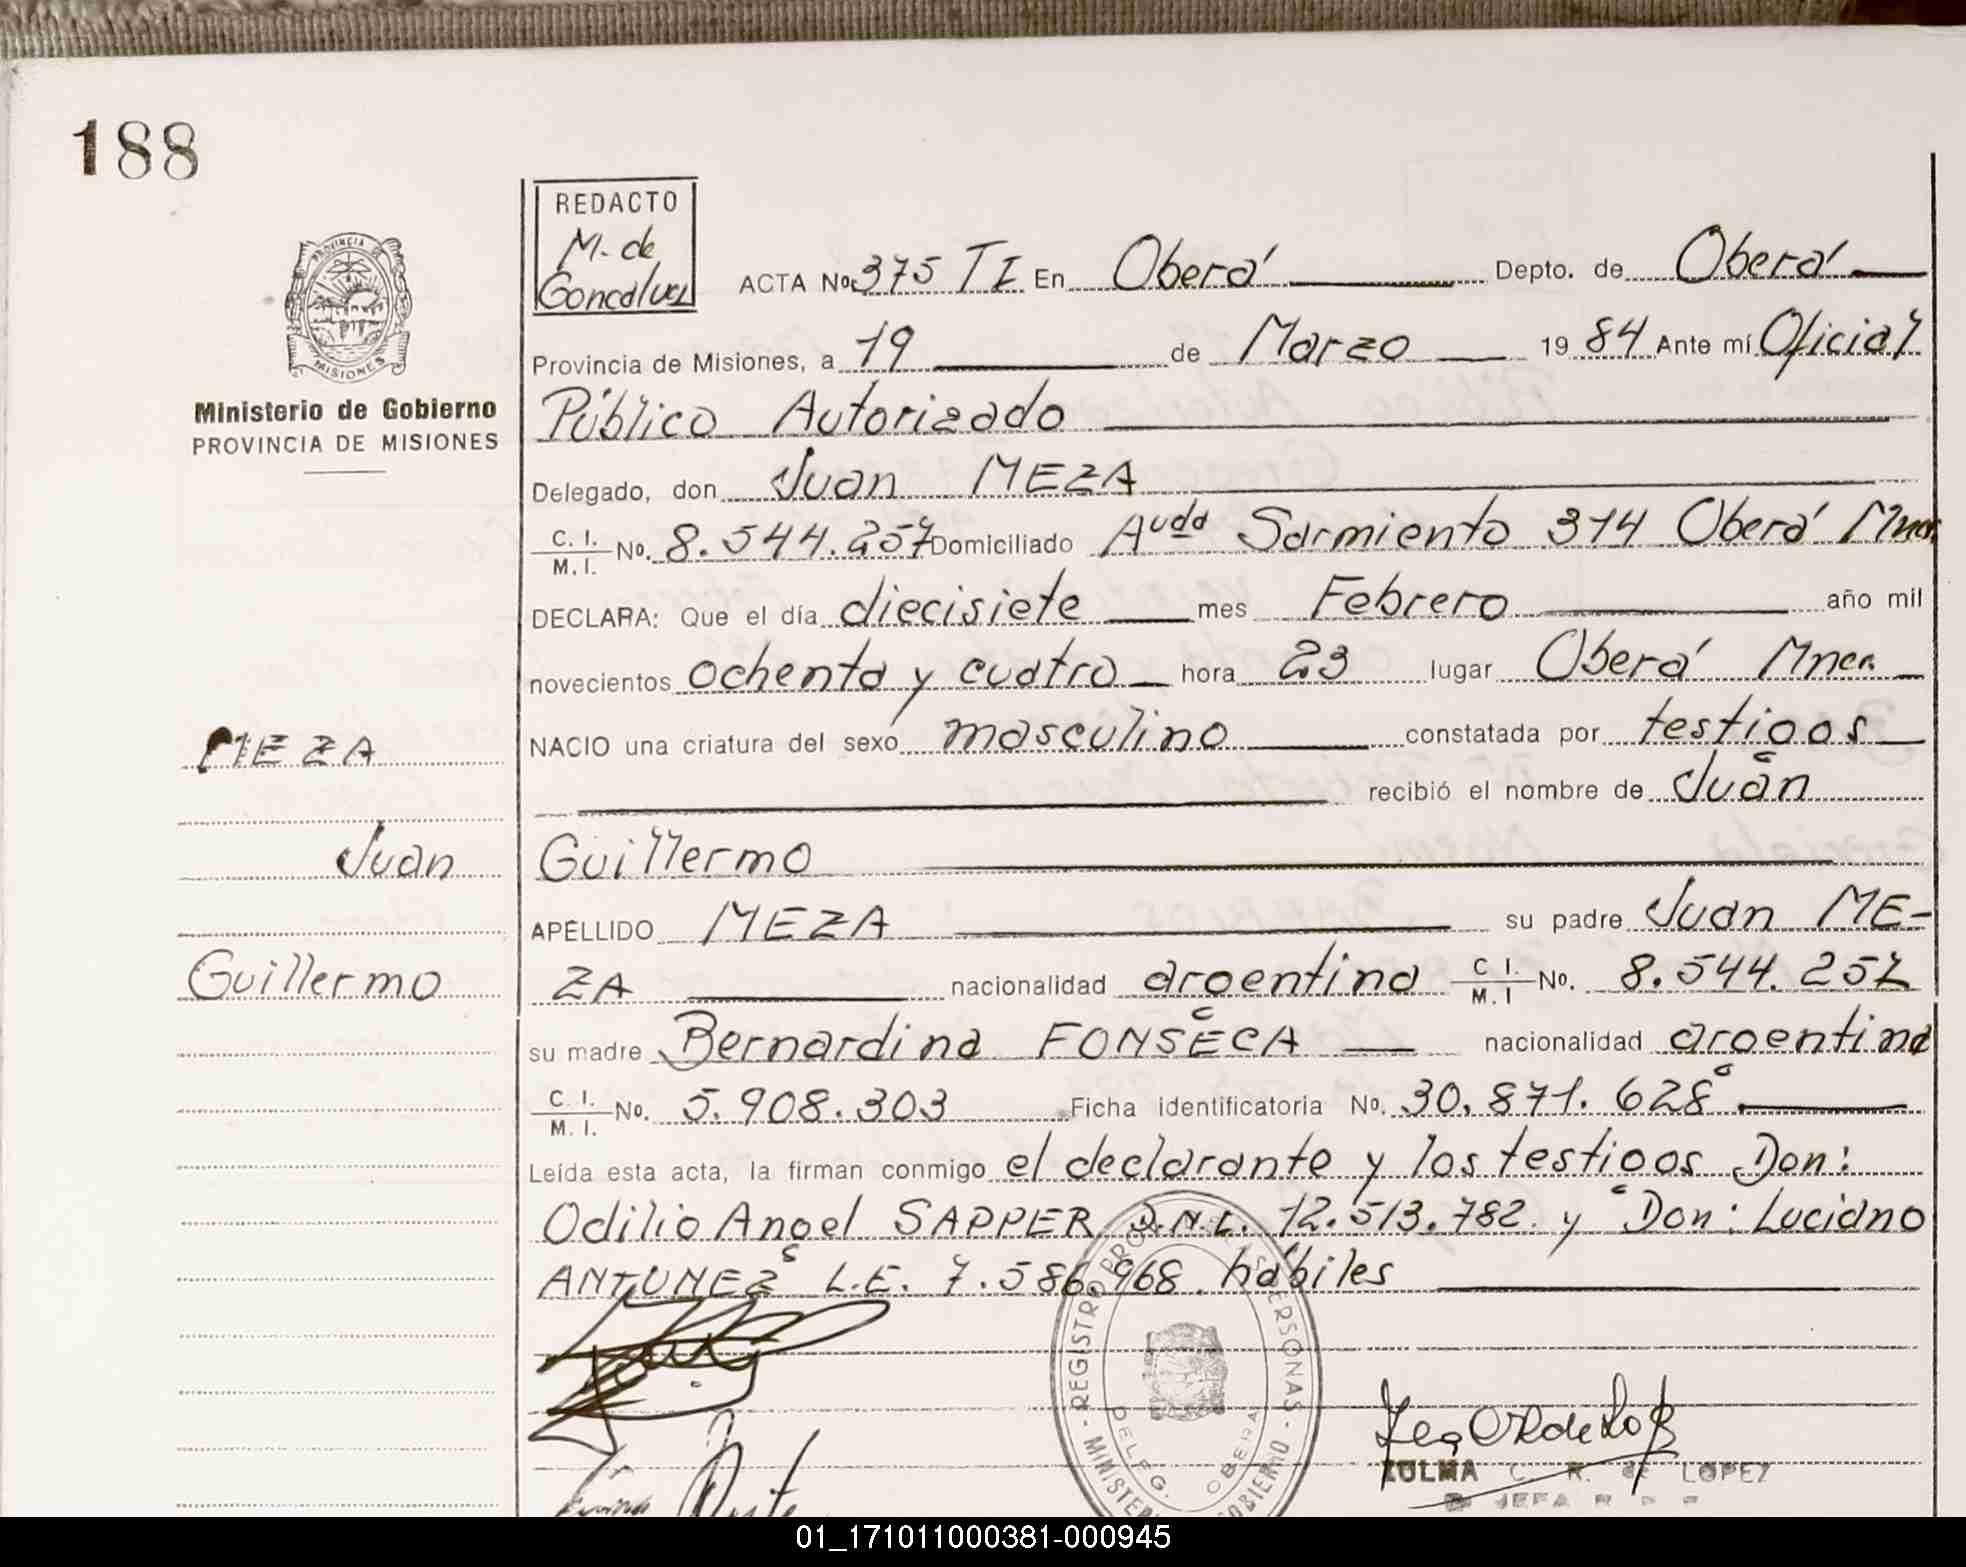 188
REDACTO
M. de
Goncalvez
ACTA No. 375 TI En Oberá Depto. de Oberá
Provincia de Misiones, a 19 de Marzo 1984 Ante mí Oficial
Público Autorizado
Delegado, don Juan MEZA
C. I. M. I. No. 8.544.257 Domiciliado Avda Sarmiento 314 Oberá Mnes.
DECLARA: Que el día diecisiete mes Febrero año mil
novecientos ochenta y cuatro hora 23 lugar Oberá Mnes.
NACIO una criatura del sexo masculino constatada por testigos
recibió el nombre de Juan
Guillermo
APELLIDO MEZA su padre Juan ME-
ZA nacionalidad argentina C I. M. I No. 8.544.257
su madre Bernardina FONSECA nacionalidad argentina
C. I. M. I. No. 5.908.303 Ficha identificatoria No. 30.871.628
Leída esta acta, la firman conmigo el declarante y los testigos Don:
Odilio Angel SAPPER D.N.I. 12.513.782 y Don: Luciano
ANTUNEZ L.E. 7.586.968 hábiles
PROVINCIA DE
MISIONES
Ministerio de Gobierno
PROVINCIA DE MISIONES
MEZA
Juan
Guillermo
REGISTRO PERSONAS
DELEG. OBERA
ZULMA C. R. de LOPEZ
JEFA
01_171011000381-000945